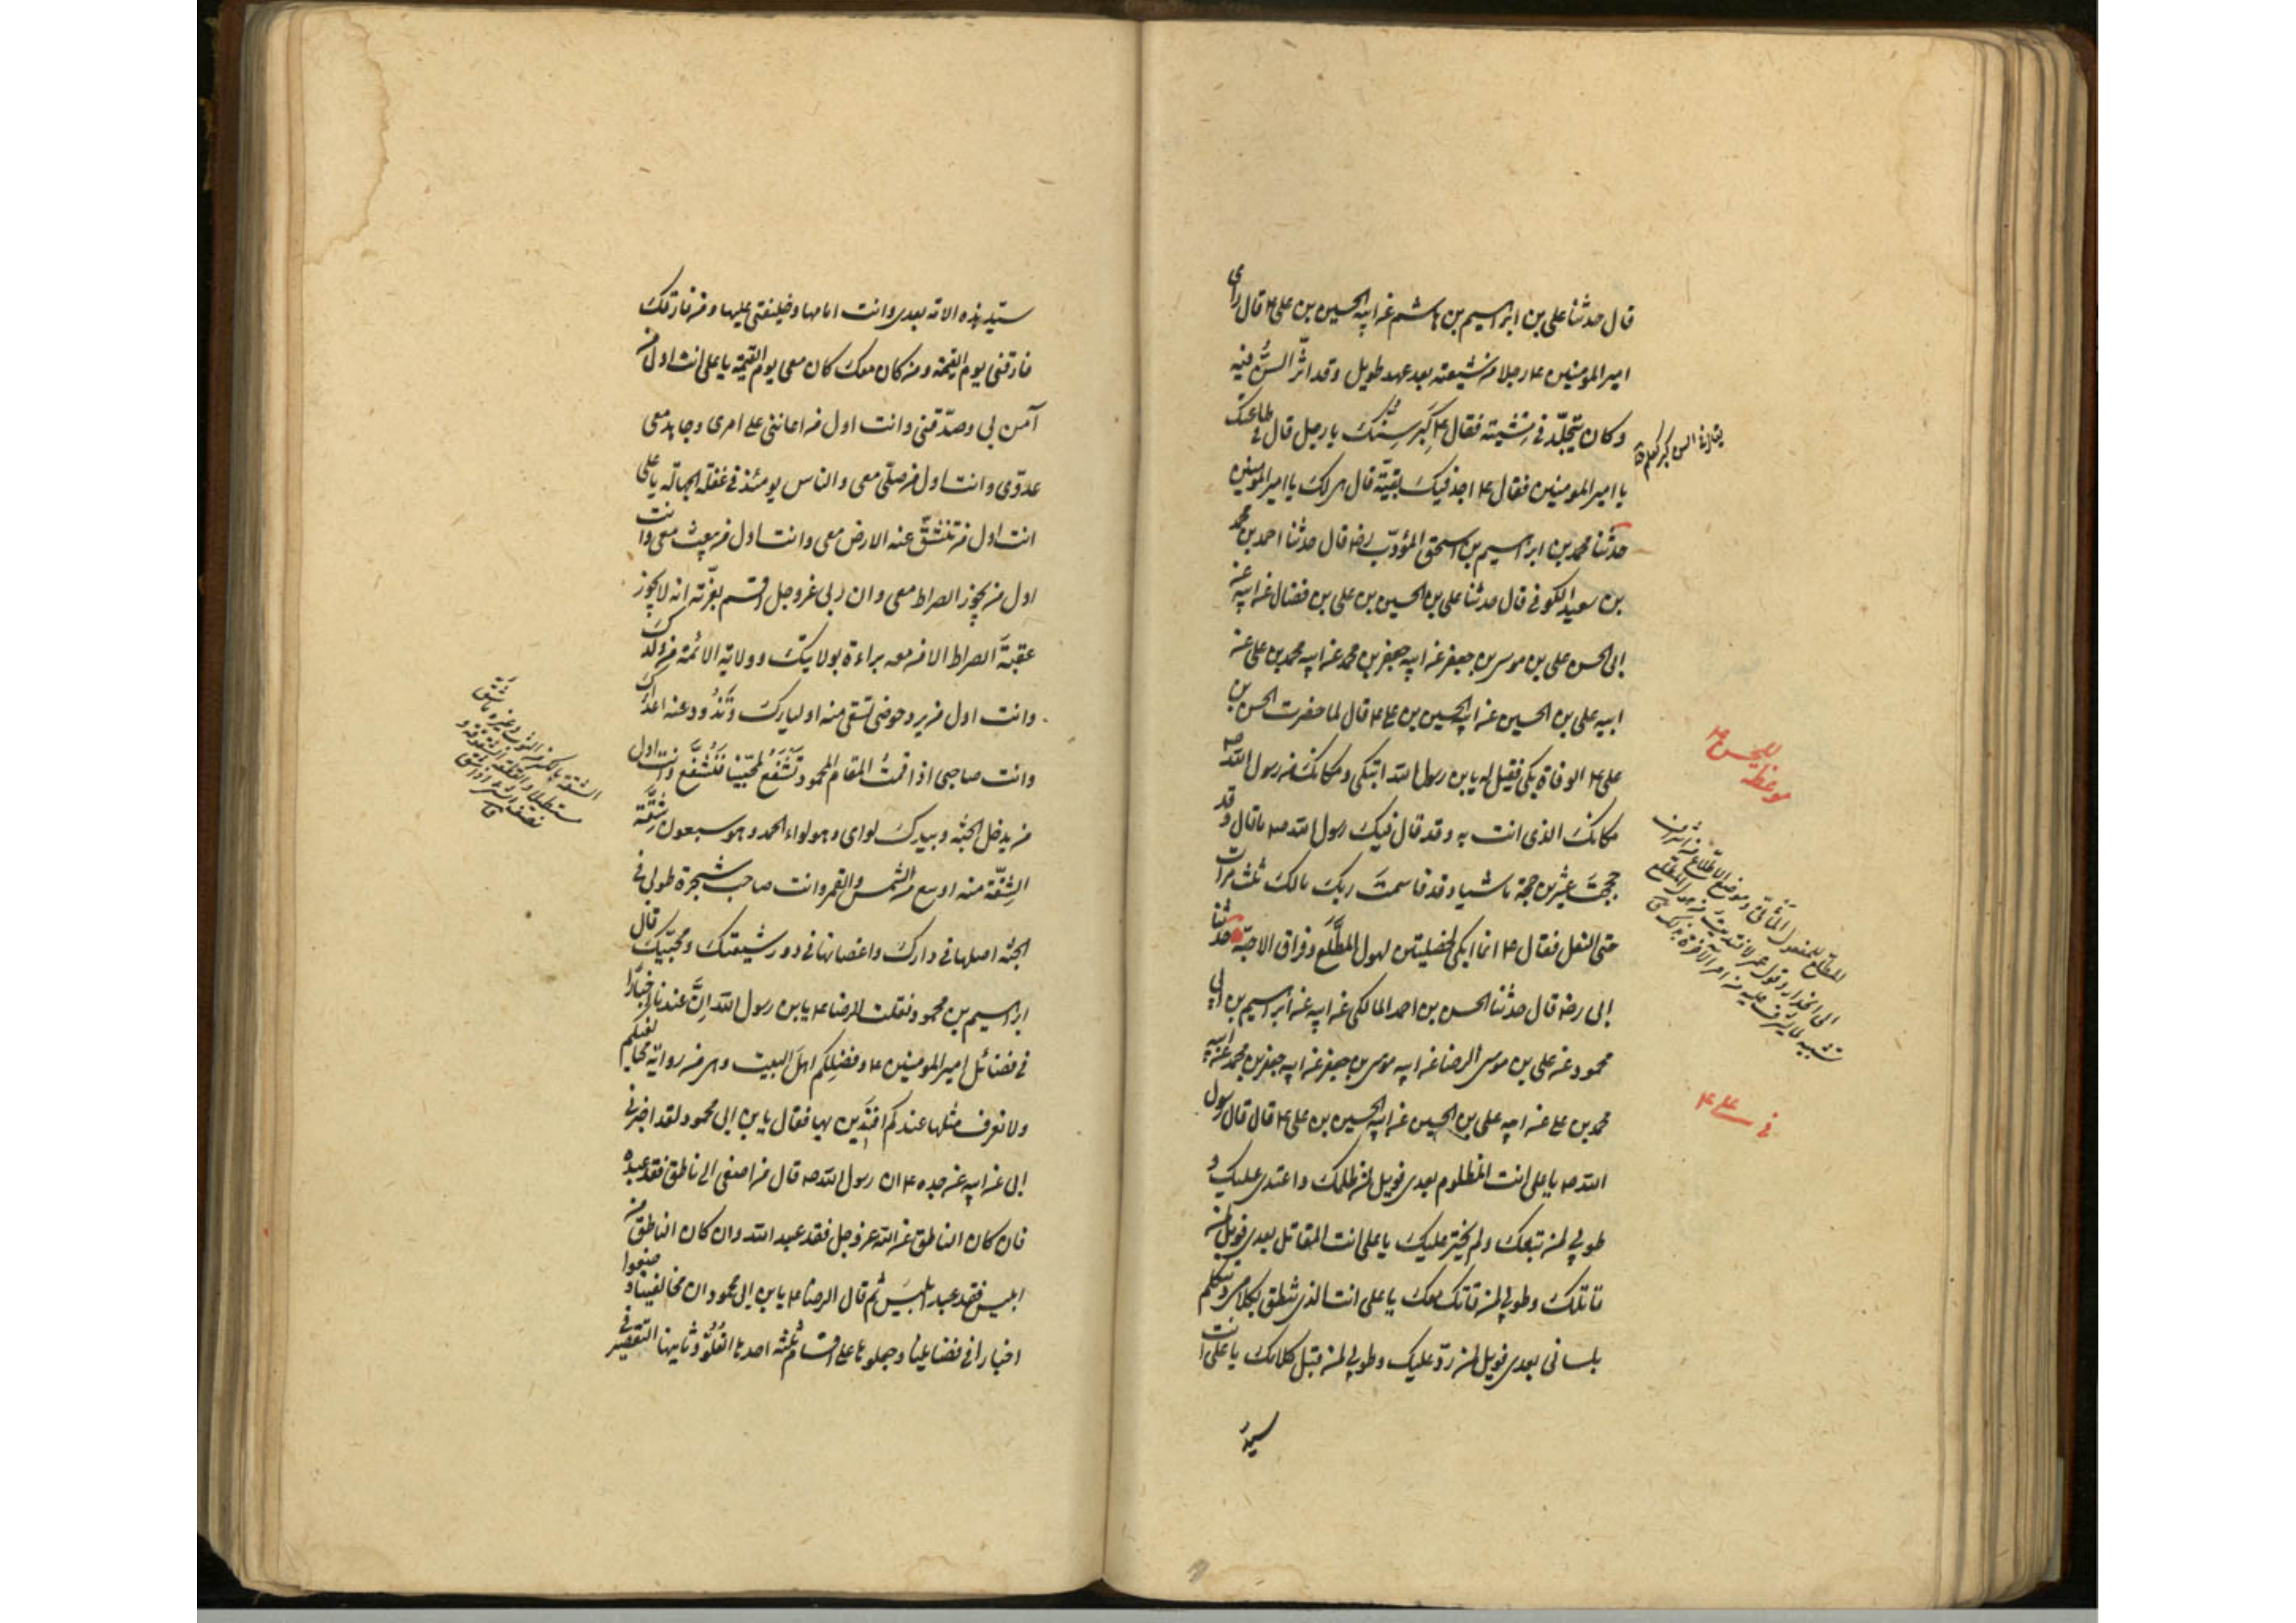 قال حدثنا علی بن ابراهیم بن هاشم عن ابیه الحسین بن علی ع قال رای
امیر المومنین ع رجلا من شیعته بعد عهد طویل و قد اثّر السنّ فیه
و کان یتجلّد فی مشیته فقال ع کَبِرَ سِنُّکَ یا رجل قال فی طاعتک
یا امیر المومنین فقال ع اجد فیک بقیّة قال هی لک یا امیر المومنین
حدثنا محمد بن ابراهیم بن اسحق المؤدّب رضه قال حدثنا احمد بن محمد
بن سعید الکوفی قال حدثنا علی بن الحسین بن علی بن فضال عن ابیه عن
ابی الحسن علی بن موسی بن جعفر عن ابیه جعفر بن محمد عن ابیه محمد بن علی عن
ابیه علی بن الحسین عن ابیه الحسین بن علی ع قال لما حضرت الحسن بن
علی ع الوفاة بکی فقیل له یابن رسول الله اتبکی و مکانک من رسول الله ص
مکانک الذی انت به و قد قال فیک رسول الله ص ما قال و قد
حججتَ عشرین حجة ماشیا و قد قاسمتَ ربک مالک ثلث مرات
حتی النعل فقال ع انما ابکی لخصلیتن لهول المُطَّلَع و فراق الاحبّة حدثنا
ابی رضه قال حدثنا الحسن بن احمد المالکی عن ابیه عن ابراهیم بن ابی
محمود عن علی بن موسی الرضا عن ابیه موسی بن جعفر عن ابیه جعفر بن محمد عن ابیه
محمد بن علی عن ابیه علی بن الحسین عن ابیه الحسین بن علی ع قال قال رسول
الله ص یا علی انت المظلوم بعدی فویل لمن ظلمک و اعتدی علیک و
طوبی لمن تبعک و لم یختر علیک یا علی انت المقاتل بعدی فویل لمن
قاتلک و طوبی لمن قاتل معک یا علی انت الذی تنطق بکلامی و تتکلم
بلسانی بعدی فویل لمن ردّ علیک و طوبی لمن قبل کلامک یا علی انت
سید
للحسن ع
موعظة
فی علی ع
سیّد هذه الامة بعدی و انت امامها و خلیفتی علیها و من فارقک
فارقنی یوم القیمة و من کان معک کان معی یوم القیمة یا علی انت اول من
آمن بی و صدّقنی و انت اول من اعاننی علی امری و جاهد معی
عدوّی و انت اول من صلّی معی و الناس یومئذ فی غفلة الجهالة یا علی
انت اول من تنشقّ عنه الارض معی و انت اول من یبعث معی و انت
اول من یجوز الصراط معی و ان ربی عز و جل اقسم بعزّته انه لا یجوز
عقبةَ الصراط الا من معه براءة بولایتک و ولایة الائمة من ولدک
و انت اول من یرد حوضی تسقی منه اولیاءک و تَذُود عنه اعداءک
و انت صاحبی اذا قمتُ المقام المحمود تَشْفَعُ لمحبّینا فَتُشَفَّع و انت اول
من یدخل الجنة و بیدک لوای و هو لواء الحمد و هو سبعون شِقَّة
الشِقّة منه اوسع من الشمس و القمر و انت صاحب شجرة طوبی فی
الجنة اصلها فی دارک و اغصانها فی دور شیعتک و محبّیک قال
ابراهیم بن محمود فقلت للرضا ع یابن رسول الله اِنَّ عندنا اخبارًا
فی فضائل امیر المومنین ع و فضلِکم اهلَ البیت و هی من روایة مخالفیکم
و لا نعرف مثلها عندکم افَنَدین بها فقال یا بن ابی محمود لقد اخبرنی
ابی عن ابیه عن جده ع ان رسول الله ص قال من اصغی الی ناطق فقد عبده
فان کان الناطق عن الله عز و جل فقد عبد الله و ان کان الناطق من
ابلیس فقد عبد ابلیسَ ثم قال الرضا ع یا بن ابی محمود ان مخالفینا وضعوا
اخبارا فی فضایلنا و جعلوها علی اقسام ثلثة احدها الغُلوّ و ثانیها التقصیر فی